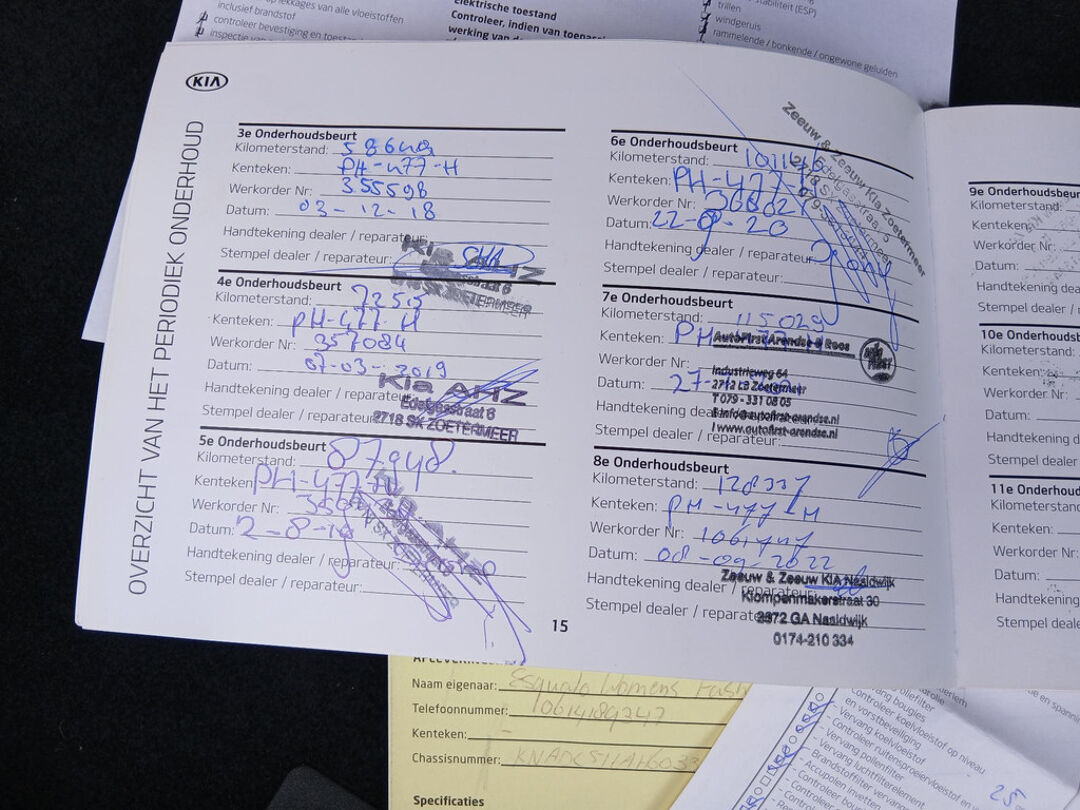 op lekkages van alle vloeistoffen
inclusief brandstof
controleer bevestiging en
inspectie
Elektrische toestand
Controleer, indien van
werking van
(ESP)
trillen
windgeruis
rammelende / bonkende / ongewone geluiden
KIA
OVERZICHT VAN HET PERIODIEK ONDERHOUD
3e Onderhoudsbeurt
Kilometerstand:
Kenteken: PH-477-H
Werkorder Nr: 355598
Datum: 03-12-18
Handtekening dealer / reparateur:
Stempel dealer / reparateur:
Kia AHZ
ZOETERMEER
4e Onderhoudsbeurt
Kilometerstand: 72515
Kenteken: PH-477-H
Werkorder Nr: 357084
Datum: 07-03-2019
Handtekening dealer / reparateur
Stempel dealer / reparateur
Kia AHZ
Edelgasstraat 6
2718 SK ZOETERMEER
5e Onderhoudsbeurt
Kilometerstand: 87948.
Kenteken: PH-477-H
Werkorder Nr:
Datum: 2-8-19
Handtekening dealer / reparateur:
Stempel dealer / reparateur:
6e Onderhoudsbeurt
Kilometerstand: 101146
Kenteken: PH-477-H
Werkorder Nr:
Datum: 22-9-20
Handtekening dealer / reparateur:
Stempel dealer / reparateur:
Zeeuw & Zeeuw Kia Zoetermeer
7e Onderhoudsbeurt
Kilometerstand: 115029
Kenteken: PH
Werkorder Nr:
Datum: 27-
Handtekening
Stempel dealer / reparateur:
AutoFirst Arendse & Roos
Industrieweg 64
2712 LB Zoetermeer
T 079 - 331 08 05
E info@autofirst-arendse.nl
I www.autofirst-arendse.nl
8e Onderhoudsbeurt
Kilometerstand: 128337
Kenteken: PH-477-H
Werkorder Nr: 1061747
Datum: 08-09-2022
Handtekening dealer / reparateur:
Stempel dealer / reparateur
Zeeuw & Zeeuw KIA Naaldwijk
Klompenmakerstraat 30
2672 GA Naaldwijk
0174-210 334
15
9e Onderhoudsbeur
Kilometerstand:
Kenteken:
Werkorder Nr:
Datum:
Handtekening dea
Stempel dealer /
10e Onderhoudsb
Kilometerstand:
Kenteken:
Werkorder Nr:
Datum:
Handtekening d
Stempel dealer
11e Onderhoud
Kilometerstand
Kenteken:
Werkorder Nr:
Datum:
Handtekening
Stempel deale
Naam eigenaar: Esqualo Womens
Telefoonnummer: 0614189747
Kenteken: -
Chassisnummer:
Specificaties
oliefilter
bougies
Controleer koelvloeistof op niveau
en vorstbeveiliging
- Vervang koelvloeistof
- Controleer ruitensproeiervloeistof en
- Vervang pollenfilter
- Vervang luchtfilterelement
- Brandstoffilter
- Accupolen
- Controle
25